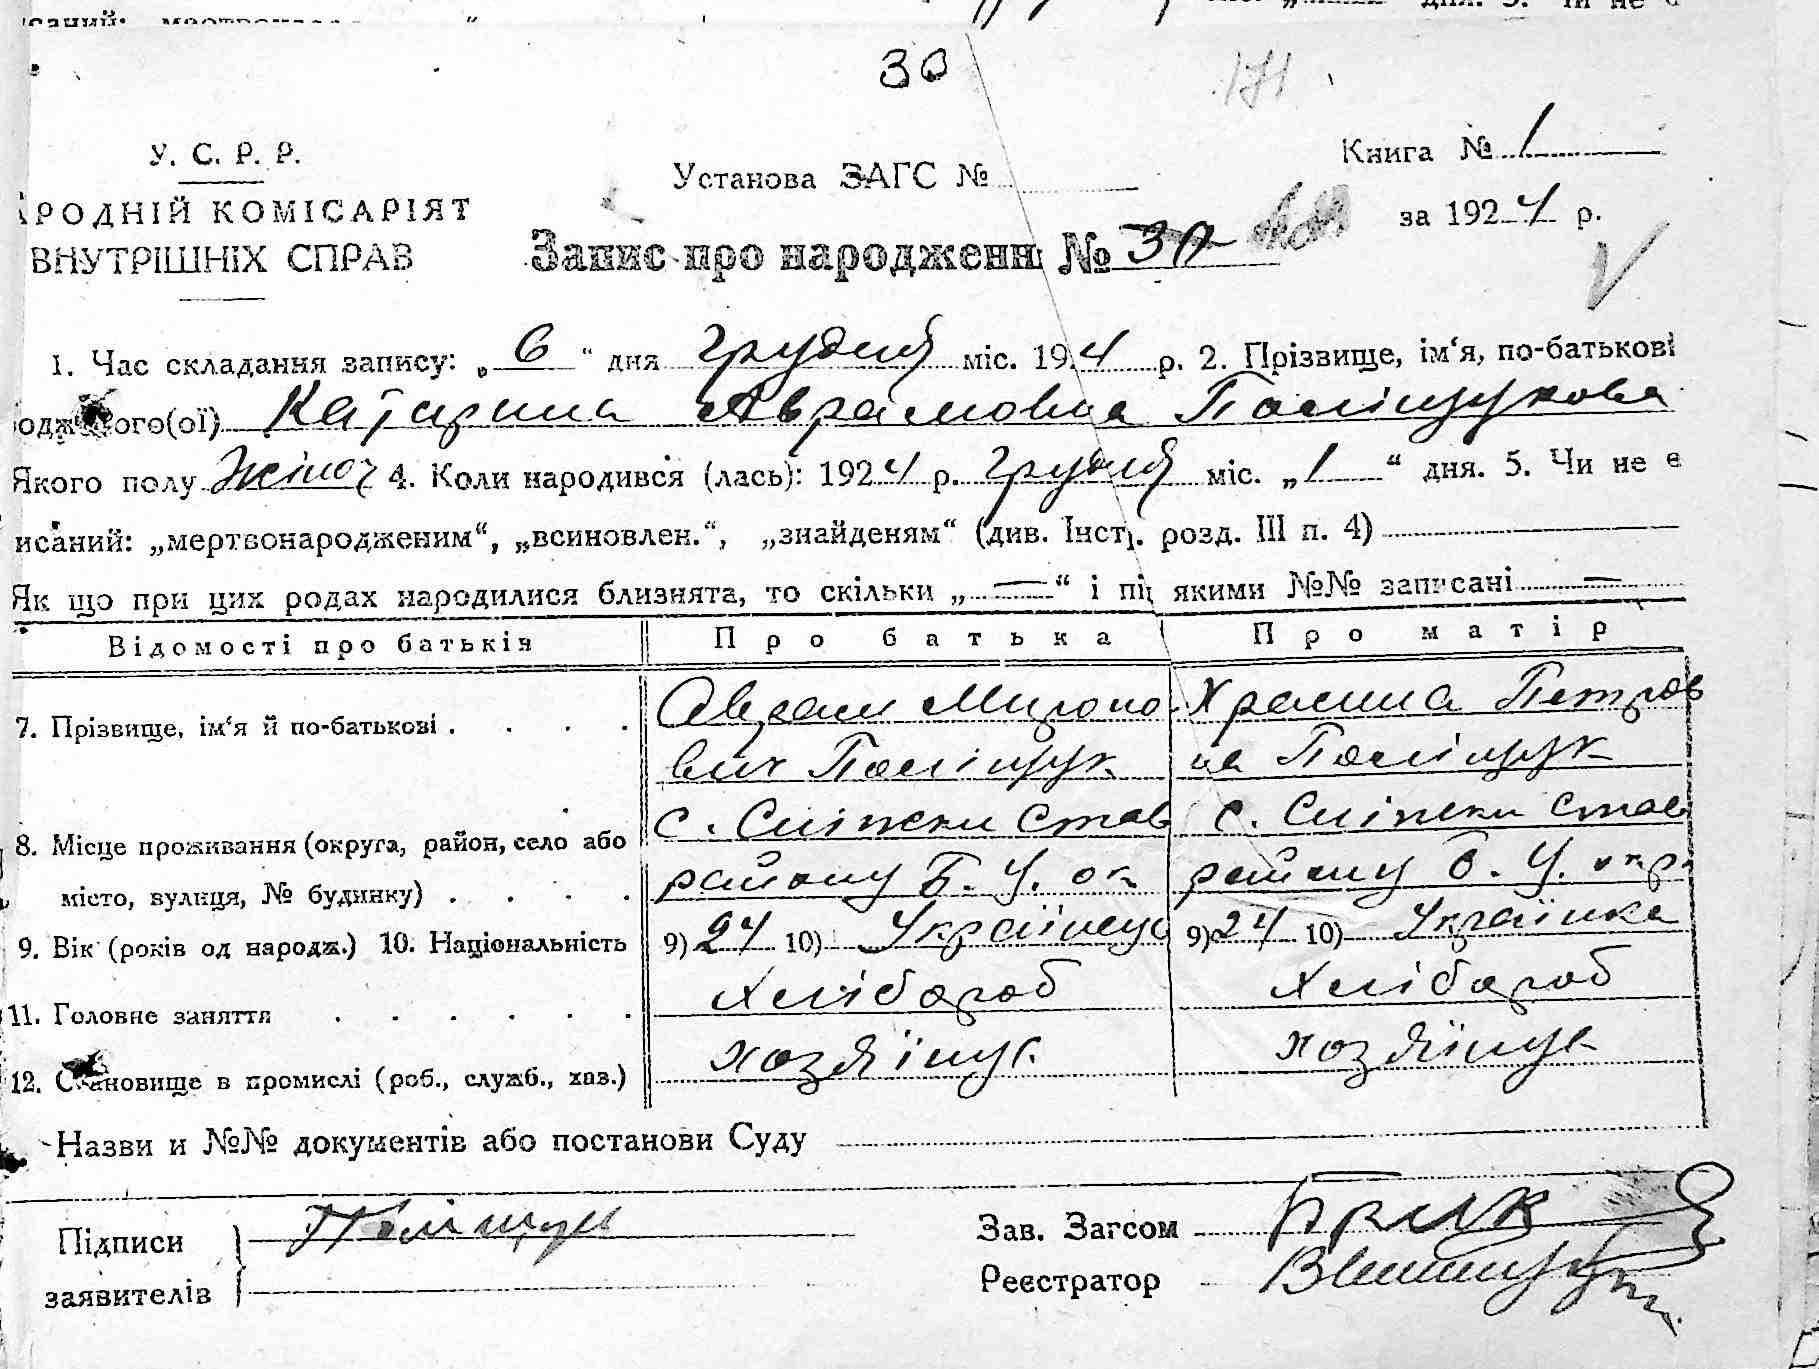 30
171
У. С. Р. Р.
РОДНІЙ КОМІСАРІЯТ
ВНУТРІШНІХ СПРАВ
Установа ЗАГС №
Книга № 1
за 1924 р.
Запис про народженн № 30
1. Час складання запису: „6“ дня грудня міс. 194 р. 2. Прізвище, ім‘я, по-батькові
ого(ої) Катерина Аврамовна Поліщукова
Якого полу жіноч 4. Коли народився (лась): 1924 р. грудня міс. „1“ дня. 5. Чи не є
исаний: „мертвонародженим“, „всиновлен.“, „знайденям“ (див. Інстр. розд. III п. 4)
Як що при цих родах народилися близнята, то скільки „—“ і під якими №№ записані —
Відомості про батьків Про батька Про матір
7. Прізвище, ім‘я й по-батькові . . . . Аврам Миропо Храсина Петров
вич Поліщук на Поліщук
с. Сніжки Став с. Сніжки Став
8. Місце проживання (округа, район, село або
місто, вулиця, № будинку) . . . . району Б. Ц. ок району Б. Ц. окр.
9. Вік (років од народж.) 10. Національність 9) 24 10) Українець 9) 24 10) Українка
11. Головне заняття . . . . . . Хлібороб Хлібороб
12. Становище в промислі (роб., служб., хаз.) хозяїнук хозяїнук
Назви и №№ документів або постанови Суду
Підписи Поліщук Зав. Загсом Брик
заявителів Реєстратор